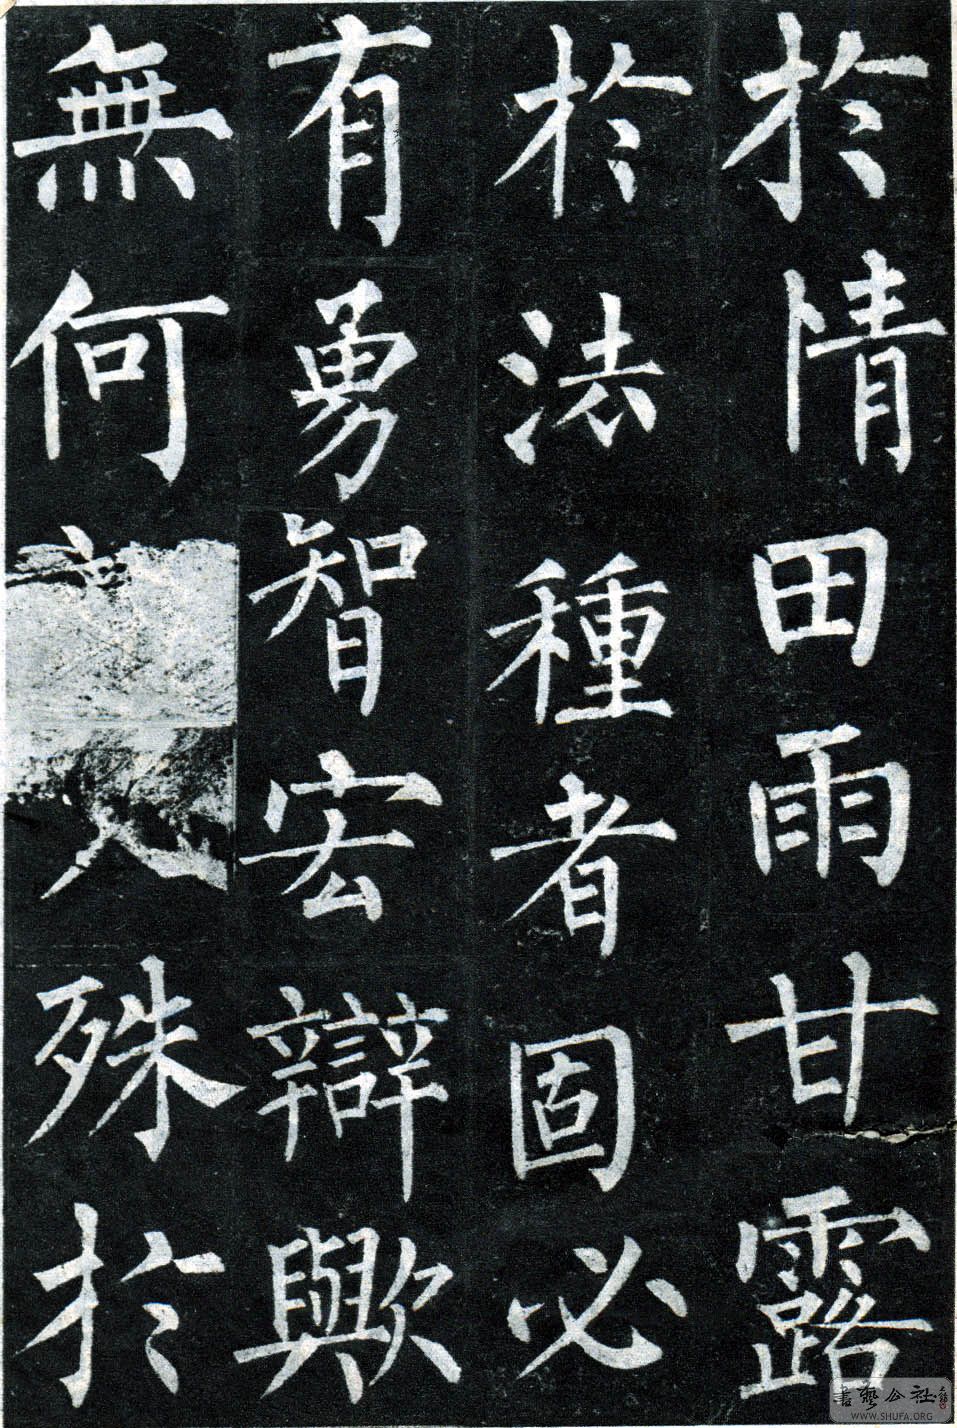 於情田雨甘露
於法種者固必
有勇智宏辯歟
無何殊於
書藝公社
WWW.SHUFA.ORG